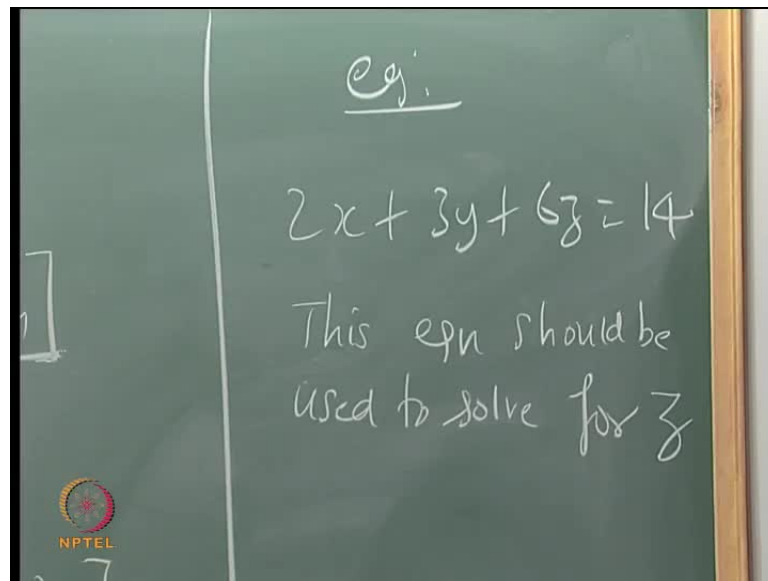 eg:
2x + 3y + 6z = 14
This eqn should be
used to solve for z
NPTEL